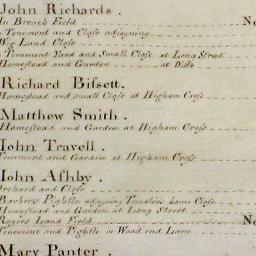 John Richards .
In Breach Field
Tenement and Close adjoyning
Wig Land Close
a Tenement Yard and Small Close at Long Street
Homestead and Garden at Ditto
Richard Bissett.
Homestead and small Close at Higham Cross
Matthew Smith .
Homestead and Garden at Higham Cross
John Travell .
Tenement and Garden at Higham Cross
John Ashby .
Orchard and Close
Barkers Pightle adjoyning Templers home Close
Homestead and Garden at Long Street
Rogers Land Field
Tenement and Pightle in Wood end Lane
Mary Panter .